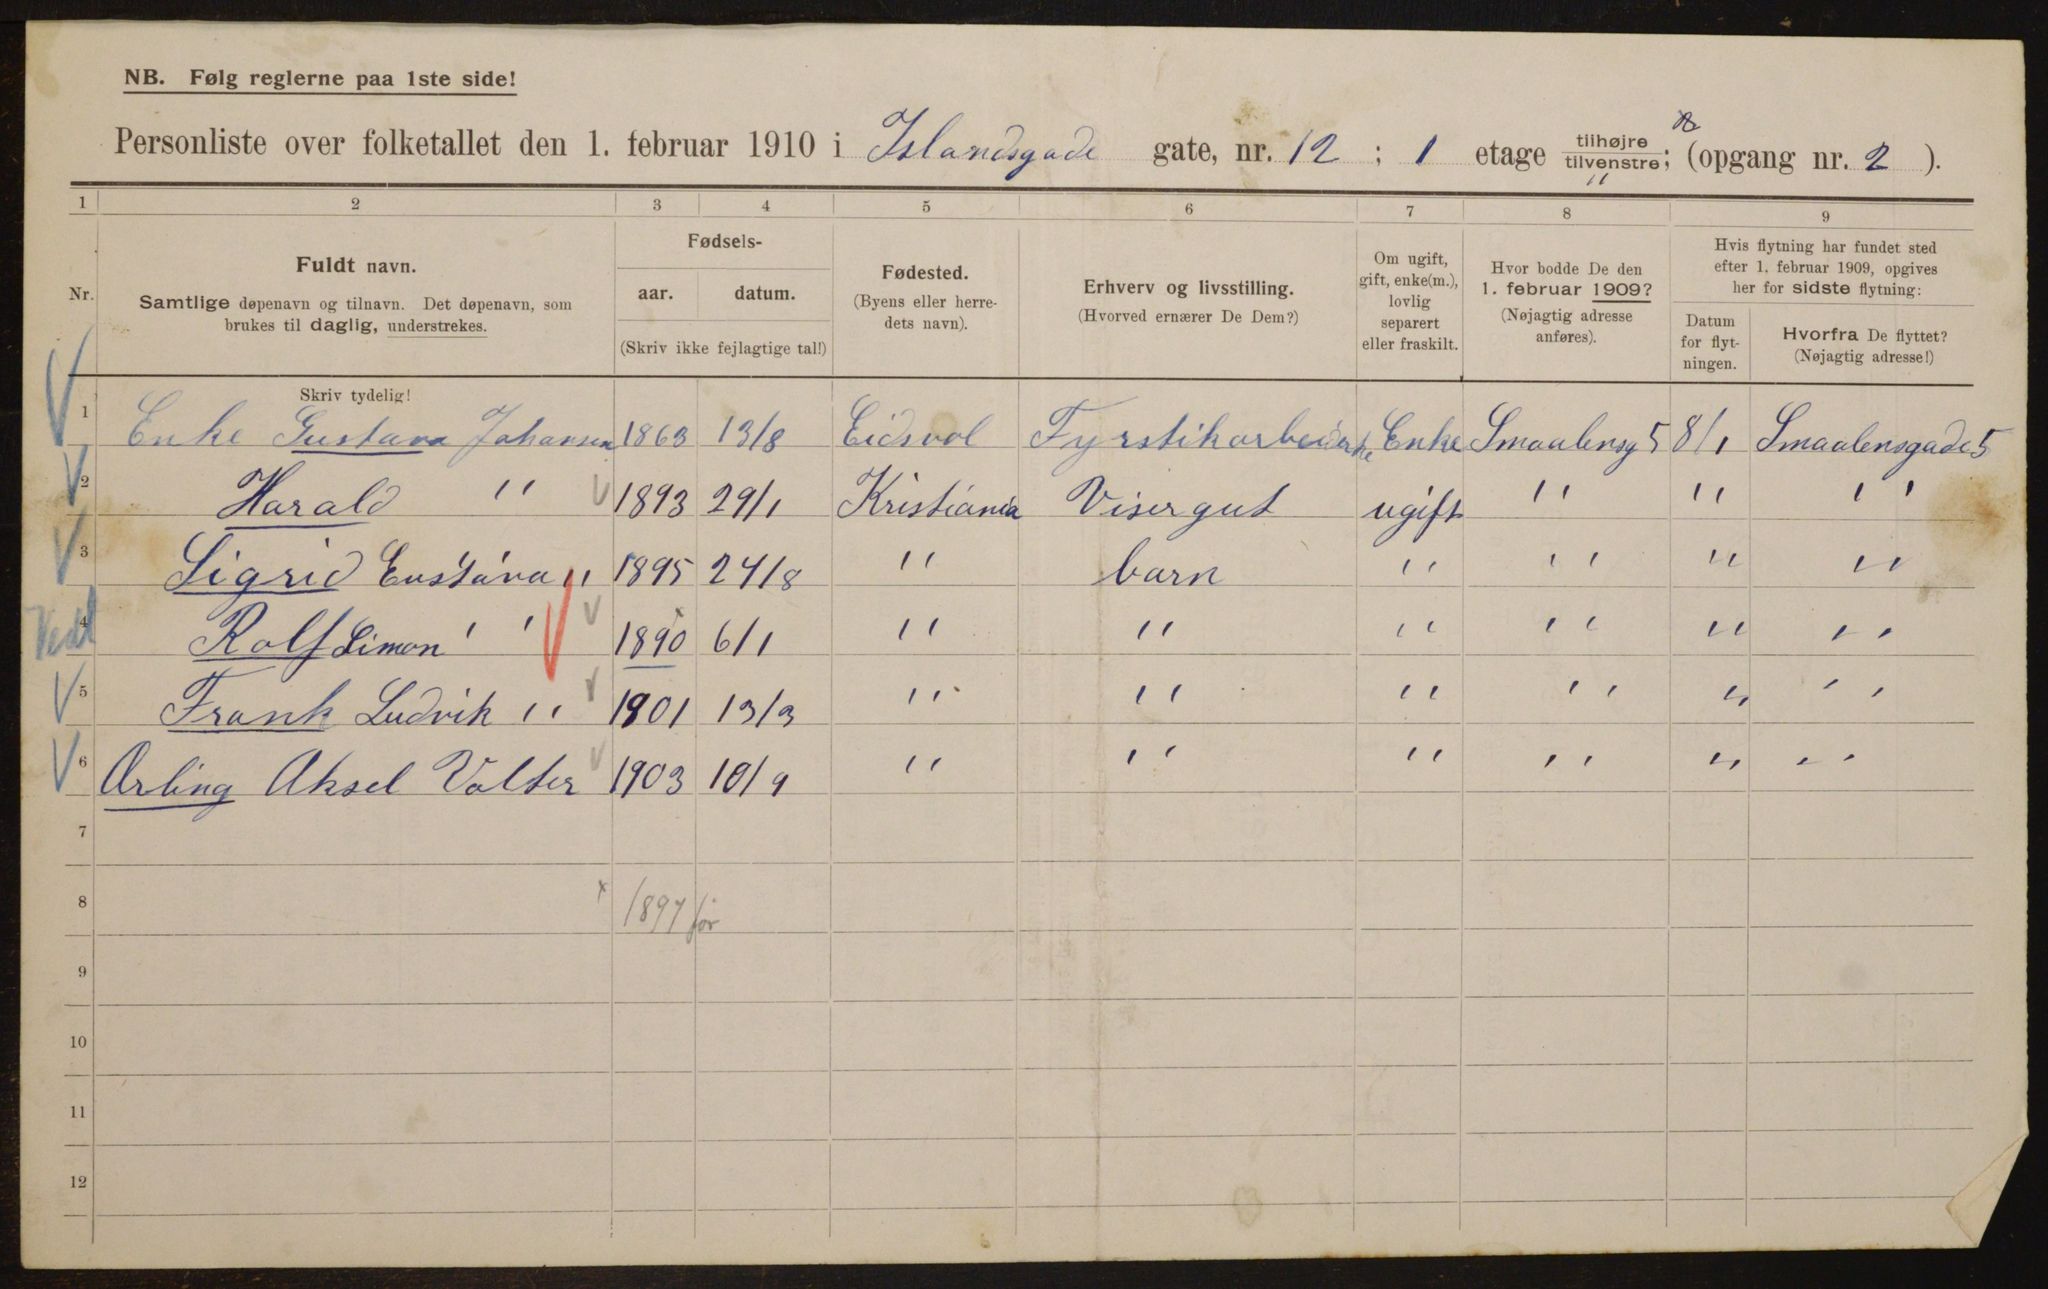 NB. Følg reglerne paa 1ste side!
Personliste over folketallet den 1. februar 1910 i Islandsgade gate, nr. 12 ; 1 etage tilhøjre tilvenstre; (opgang nr. 2 ).
1 2 3 4 5 6 7 8 9
Nr.
Fuldt navn.
Samtlige døpenavn og tilnavn. Det døpenavn, som
brukes til daglig, understrekes.
Fødsels-
aar. datum.
(Skriv ikke fejlagtige tal!)
Fødested.
(Byens eller herre-
dets navn).
Erhverv og livsstilling.
(Hvorved ernærer De Dem?)
Om ugift,
gift, enke(m.),
lovlig
separert
eller fraskilt.
Hvor bodde De den
1. februar 1909?
(Nøjagtig adresse
anføres).
Hvis flytning har fundet sted
efter 1. februar 1909, opgives
her for sidste flytning:
Datum
for flyt-
ningen.
Hvorfra De flyttet?
(Nøjagtig adresse!)
Skriv tydelig!
1 Enke Gustava Johansen 1863 13/8 Eidsvol Fyrstikarbeiderske Enke Smaalensg 5 8/1 Smaalensgade 5
2 Harald " 1893 29/1 Kristiania Visergut ugift " " "
3 Sigrid Gustava " 1895 24/8 " barn " " " "
4 Rolf Simon " 1890 6/1 " " " " " "
5 Frank Ludvik " 1901 13/3 " " " " " "
6 Arling Aksel Valter 1903 10/9 " " " " " "
7
8 x 1897 før
9
10
11
12